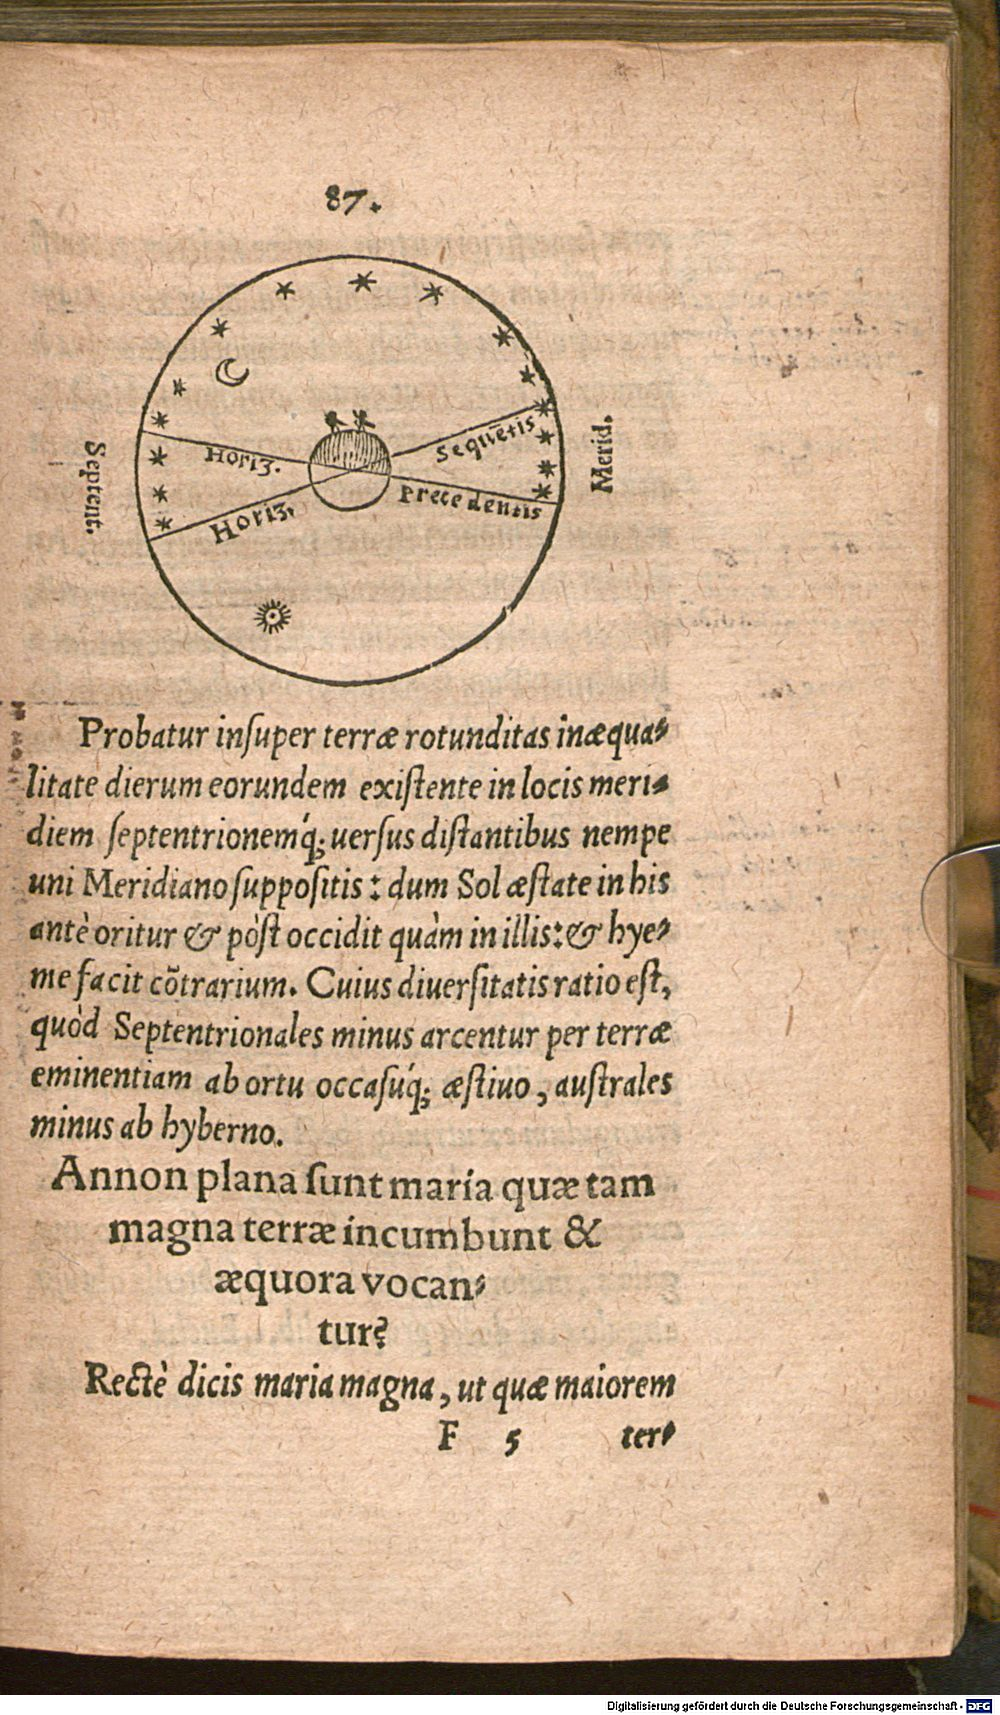 87.
Septent.
Horiz.
Sequētis
Merid.
Horiz.
Precedentis
Probatur inſuper terræ rotunditas inæqua-
litate dierum eorundem exiſtente in locis meri-
diem ſeptentrionemq́; uerſus diſtantibus nempe
uni Meridiano ſuppoſitis: dum Sol æſtate in his
antè oritur & pòſt occidit quàm in illis: & hye-
me facit cōtrarium. Cuius diuerſitatis ratio eſt,
quòd Septentrionales minus arcentur per terræ
eminentiam ab ortu occaſuq́; æſtiuo, auſtrales
minus ab hyberno.
Annon plana ſunt maria quæ tam
magna terræ incumbunt &
æquora vocan-
tur?
Rectè dicis maria magna, ut quæ maiorem
F 5 ter-
Digitalisierung gefördert durch die Deutsche Forschungsgemeinschaft - DFG